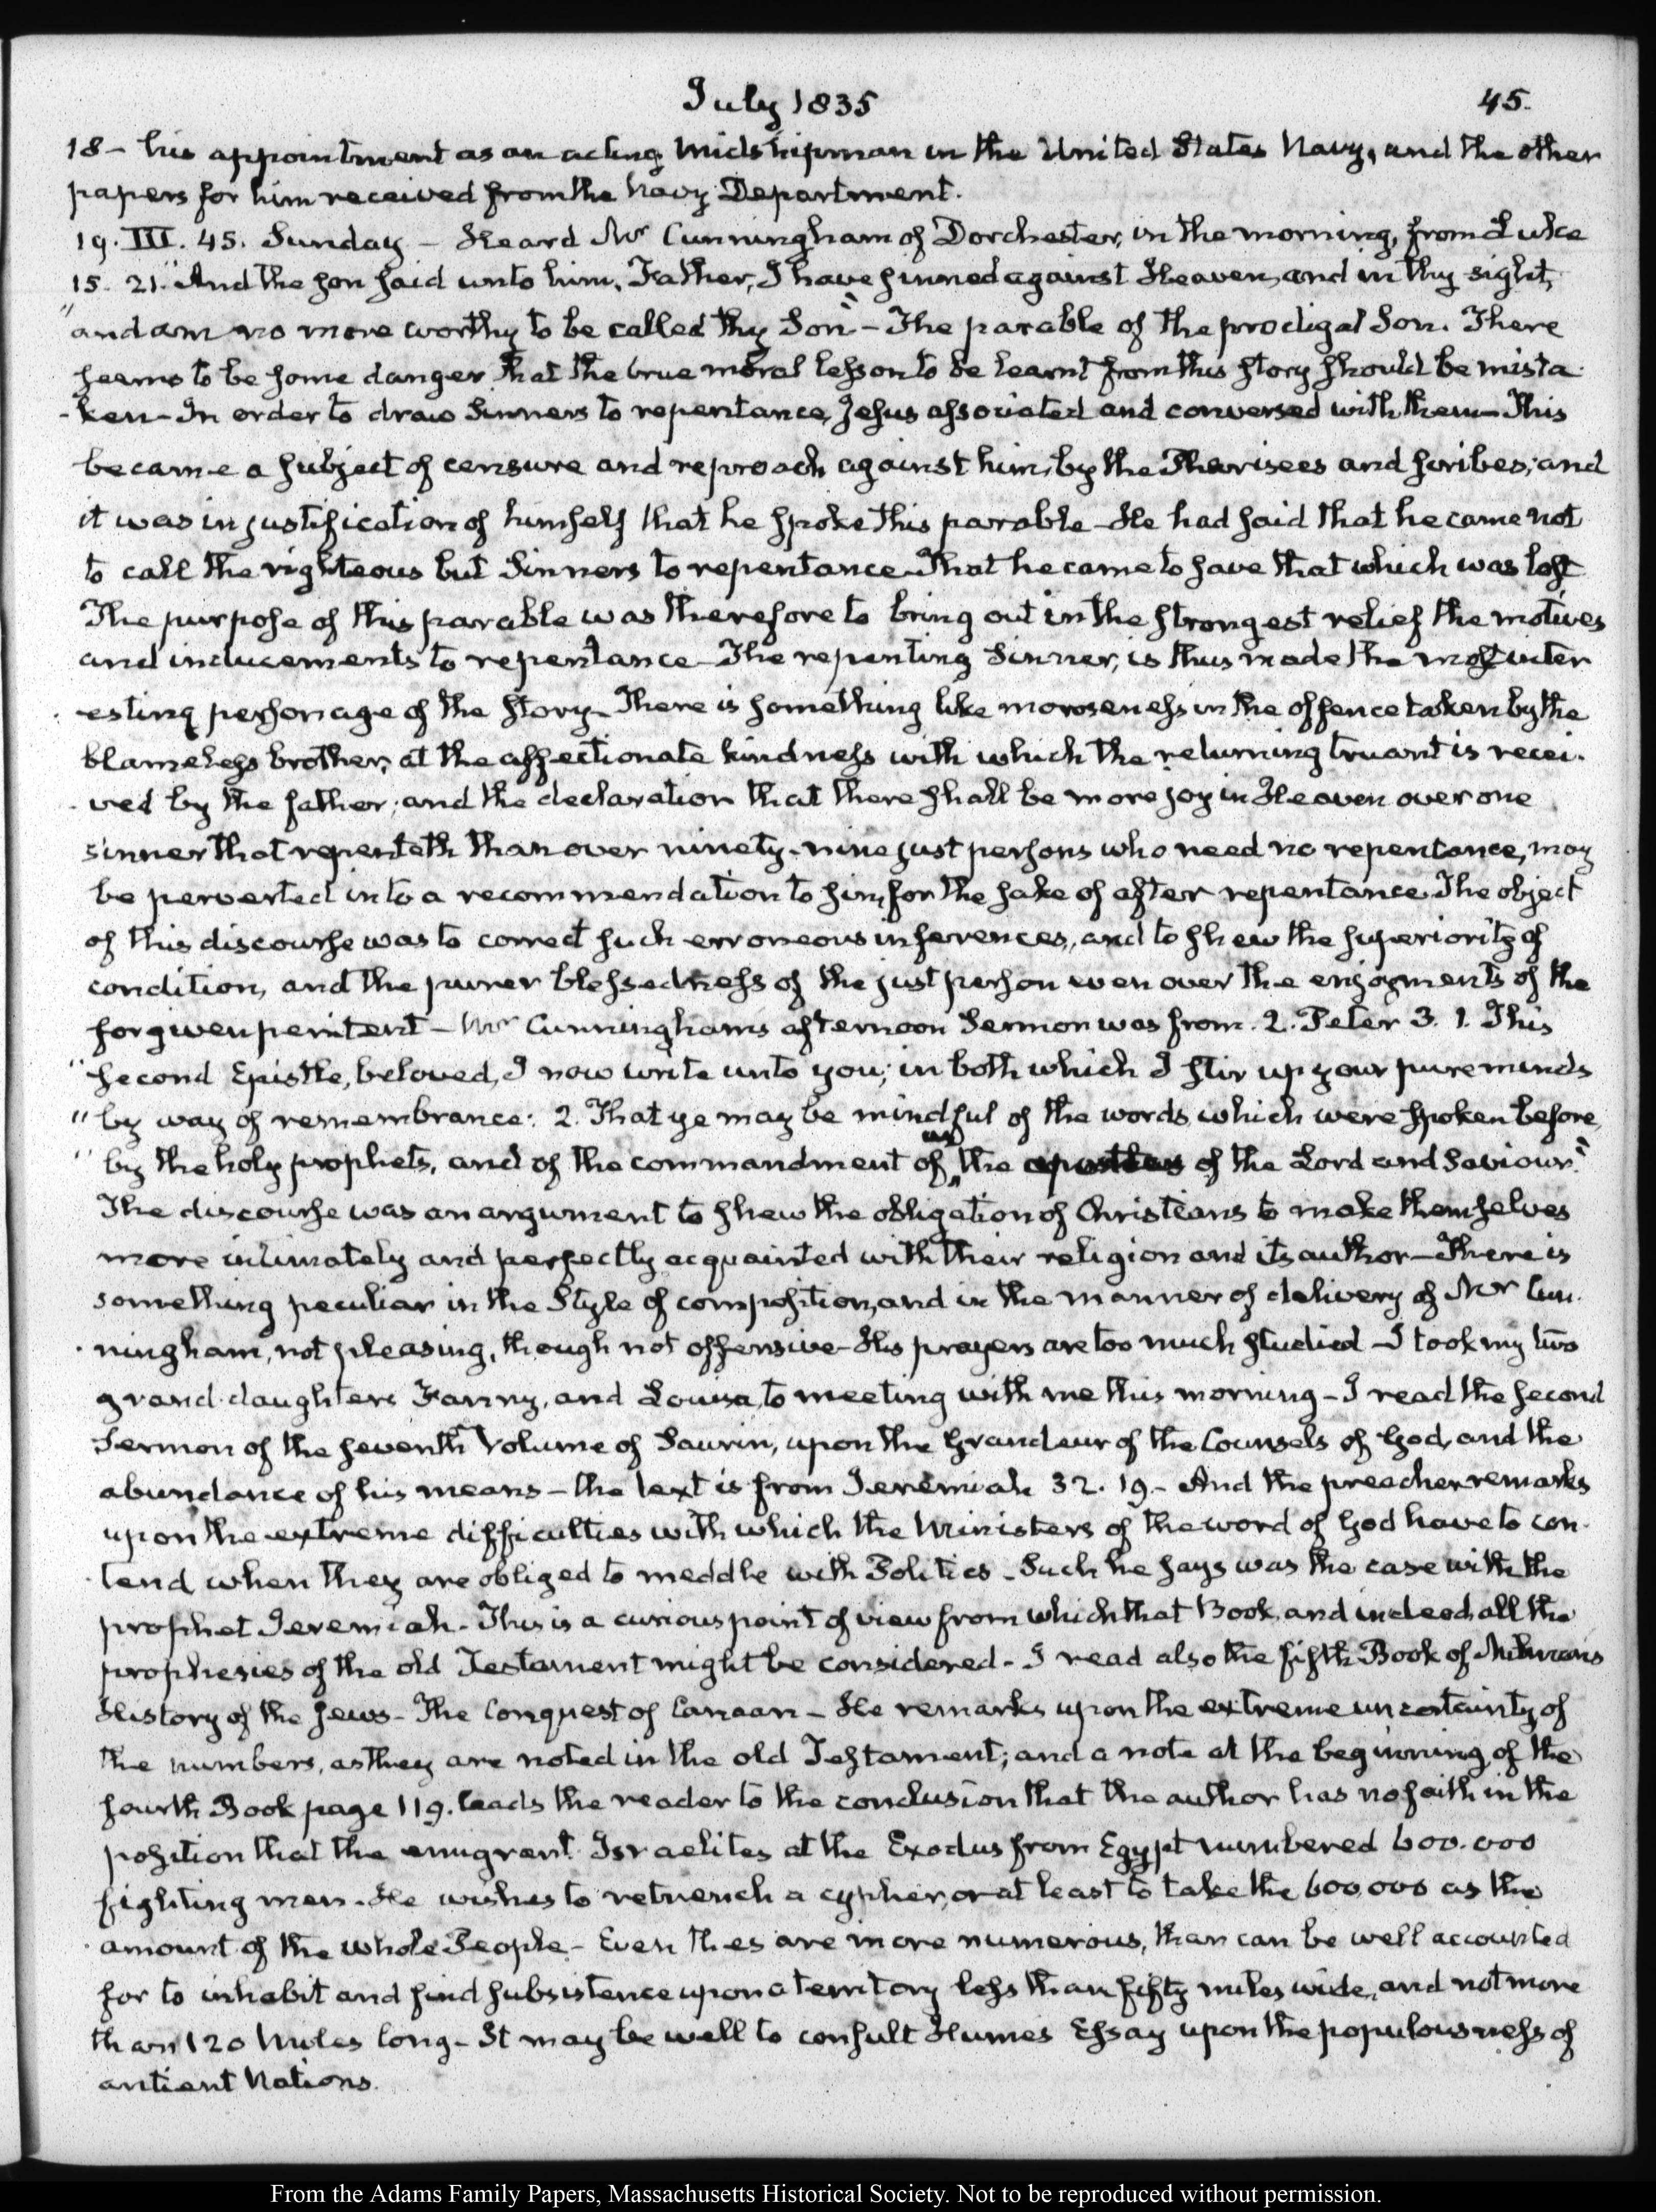 July 1835
45.
18 – his appointment as an acting Midshipman in the United States Navy, and the other
papers for him received from the Navy Department.
19. III. 45. Sunday – Heard Mr Cunningham of Dorchester, in the morning, from Luke
15. 21. "And the son said unto him, Father, I have sinned against Heaven, and in thy sight,
"and am no more worthy to be called thy Son" – The parable of the prodigal Son. There
seems to be some danger that the true moral lesson to be learnt from this story should be mista-
-ken – In order to draw Sinners to repentance, Jesus associated and conversed with them – This
became a subject of censure and reproach against him, by the Pharisees and scribes; and
it was in justification of himself that he spoke this parable – He had said that he came not
to call the righteous but Sinners to repentance – That he came to save that which was lost
The purpose of this parable was therefore to bring out in the strongest relief the motives
and inducements to repentance – The repenting Sinner, is thus made the most inter
-esting personage of the story – There is something like moroseness in the offence taken by the
blameless brother, at the affectionate kindness with which the returning truant is recei-
-ved by the father; and the declaration that there shall be more joy in Heaven over one
sinner that repenteth than over ninety-nine just persons who need no repentance, may
be perverted into a recommendation to sin, for the sake of after repentance. The object
of this discourse was to correct such erroneous inferences, and to shew the superiority of
condition, and the purer blessedness of the just person even over the enjoyments of the
forgiven penitent – Mr Cunninghams afternoon Sermon was from. 2. Peter 3. 1. This
"second Epistle, beloved, I now write unto you; in both which I stir up your pure minds
"by way of remembrance: 2. That ye may be mindful of the words which were spoken before
"by the holy prophets, and of the commandment of us the apostles of the Lord and Saviour."
The discourse was an argument to shew the obligation of Christians to make themselves
more intimately and perfectly acquainted with their religion and its author – There is
something peculiar in the Style of composition, and in the manner of delivery of Mr Cun-
-ningham, not pleasing, though not offensive – His prayers are too much studied – I took my two
grand-daughters Fanny, and Louisa, to meeting with me this morning – I read the second
Sermon of the seventh Volume of Saurin, upon the Grandeur of the Counsels of God, and the
abundance of his means – the text is from Jeremiah 32. 19. – And the preacher remarks
upon the extreme difficulties with which the Ministers of the word of God have to con-
-tend when they are obliged to meddle with Politics – Such he says was the case with the
prophet Jeremiah – This is a curious point of view from which that Book, and indeed all the
prophesies of the old Testament might be considered – I read also the fifth Book of Milmans
History of the Jews – The Conquest of Canaan – He remarks upon the extreme uncertainty of
the numbers, as they are noted in the old Testament; and a note at the beginning of the
fourth Book page 119. leads the reader to the conclusion that the author has no faith in the
position that the emigrant Israelites at the Exodus from Egypt numbered 600.000
fighting men – He wishes to retrench a cypher, or at least to take the 600,000 as the
amount of the whole People – Even thes are more numerous, than can be well accounted
for to inhabit and find subsistence upon a territory less than fifty miles wide, and not more
than 120 Miles long – It may be well to consult Humes Essay upon the populousness of
antient Nations.
From the Adams Family Papers, Massachusetts Historical Society. Not to be reproduced without permission.